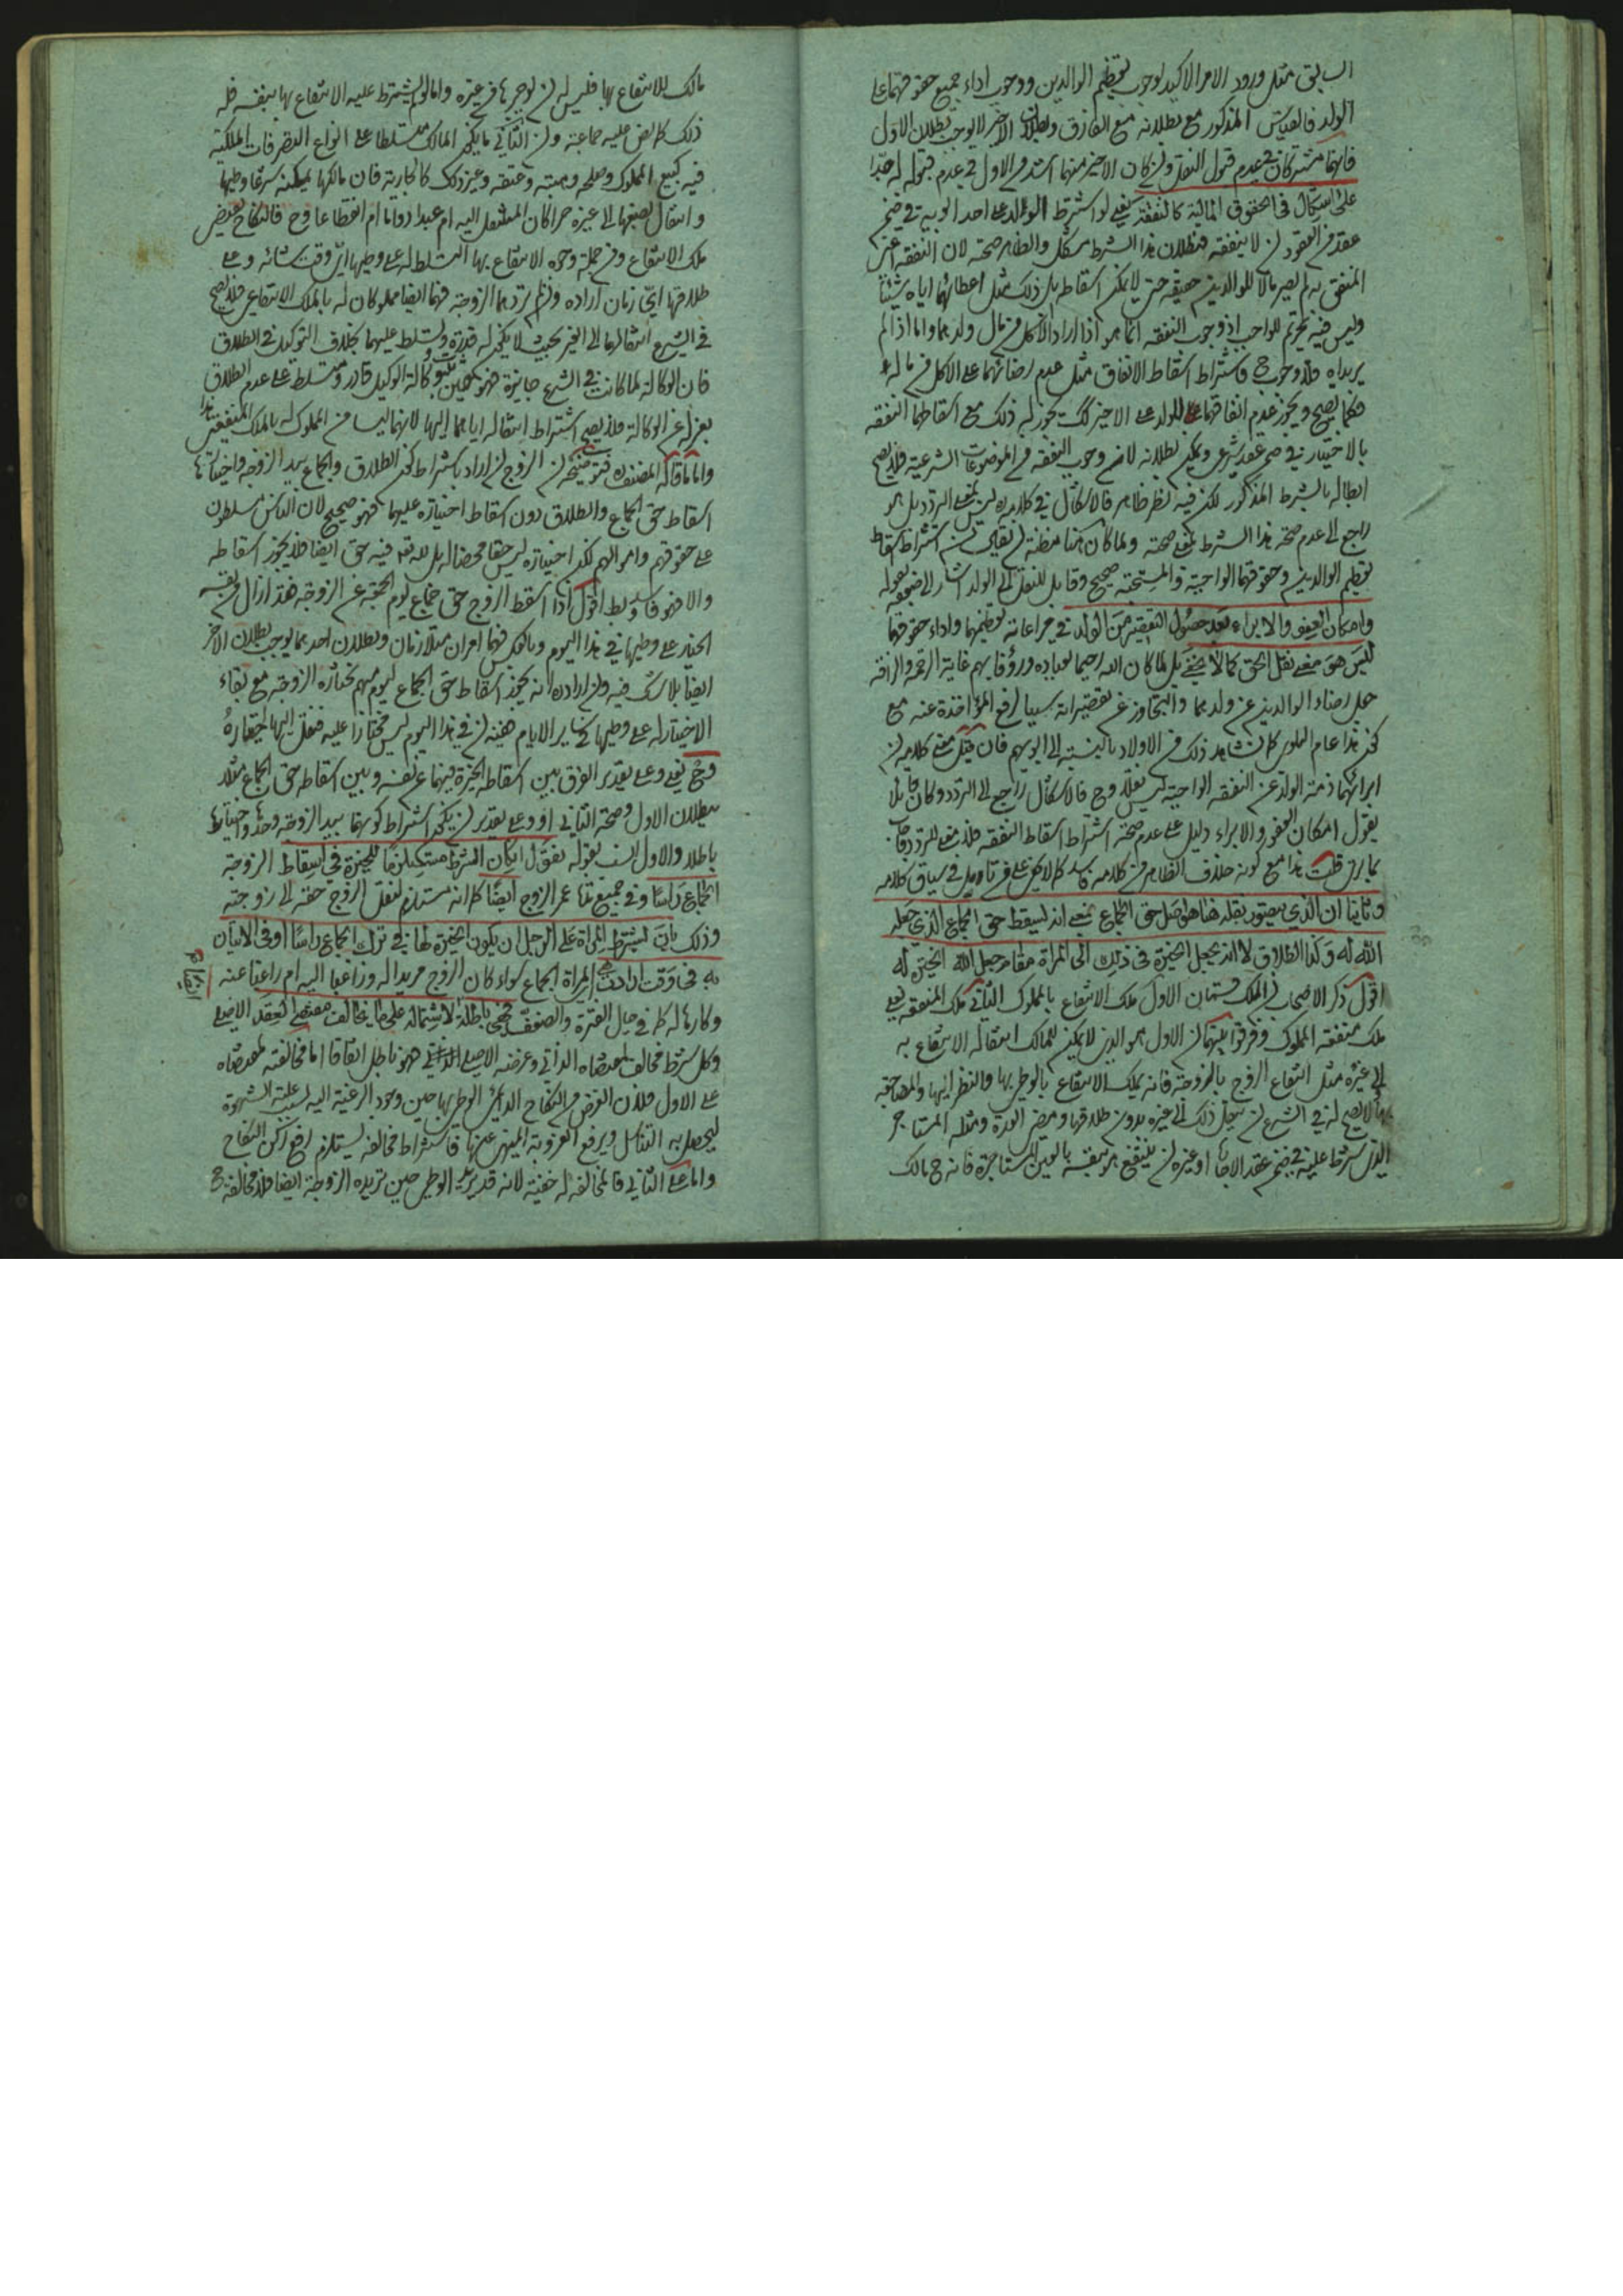 السابق مثل ورود الامر الاكيد لوجوب تعظيم الوالدين ووجوب اداء جميع حقوقهما على
الولد فالقياس المذكور مع بطلانه مع الفارق وبطلان الاخير لا يوجب بطلان الاول
فانهما مشتركان في عدم قبول النقل وان كان الاخير منهما اشد من الاول في عدم قبوله له جدا
على اشكال في الحقوق المالية كالنفقة يعني لو اشترط الولد على احد ابويه في ضمن
عقد من العقود ان لا ينفقه فبطلان هذا الشرط مشكل والظاهر صحته لان النفقة
المنفق به لم يصر مالا للوالدين حقيقة حتى لا يمكن اسقاطه بل ذلك مثل اعطائهما اياه شيئا
وليس فيه تحريم للواجب اذ وجوب النفقة انما هو اذا اراد الاكل من مال ولدهما واما اذا لم
يريداه فلا وجوب ح فاشتراط اسقاط الانفاق مثل عدم رضائهما على الاكل من ماله
فكما يصح ويجوز عدم انفاقهما للولد على الاخير كك يجوز له ذلك مع اسقاطهما النفقة
بالاختيار في ضمن عقد شرعي ويمكن بطلانه لان وجوب النفقة من الموضوعات الشرعية فلا يصح
ابطاله بالشرط المذكور لكن فيه نظر ظاهر فالاشكال في كلامه ليس بمعنى التردد بل هو
راجع الى عدم صحة هذا الشرط بمعنى صحته ولما كان هنا مظنة ان يقال ان اشتراط اسقاط
تعظيم الوالدين وحقوقهما الواجبة والمستحبة صحيح وقابل للنقل الى الولد اشار الى ضعفه بقوله
وامكان العفو والابراء بعد حصول التقصير من الولد في مراعاته تعظيمهما واداء حقوقهما
ليس هو معنى نقل الحق كما لا يخفى بل لما كان الله رحيما لعباده ورؤفا بهم غاية الرحمة والرافة
جعل رضاء الوالدين عن ولدهما والتجاوز عن تقصيراته سببا لرفع المؤاخذة عنه مع
كون هذا عام البلوى كما نشاهد ذلك من الاولاد بالنسبة الى ابويهم فان قيل معنى كلامه ان
ابرائهما ذمة الولد عن النفقة الواجبة ليس نقلا وح فالاشكال راجع الى التردد وكان قائلا
يقول امكان العفو والابراء دليل على عدم صحة اشتراط اسقاط النفقة فلا معنى للتردد فاجاب
بما ترى قلت هذا مع كونه خلاف الظاهر من كلامه فاسد كما لا يخفى على من تامل في سياق كلامه
وثانيا ان الذي يتصور نقله هنا هو اصل حق الجماع بمعنى انه يسقط حق الجماع الذي جعله
الله له وكذا الطلاق لا انه يجعل الخيرة في ذلك الى المراة مقام جعل الله الخيرة له
اقول ذكر الاصحاب ان الملك قسمان الاول ملك الانتفاع بالمملوك الثاني ملك المنفعة يعني
ملك منفعة المملوك وفرقوا بينهما ان الاول هو الذي لا يمكن للمالك انتقاله الانتفاع به
الى غيره مثل انتفاع الزوج بالزوجة فانه يملك الانتفاع بالوطي بها والنظر اليها والمضاجعة
بها لا يصح له في الشرع ان ينقل ذلك الى غيره بدون طلاقها ومضي العدة ومثله المستاجر
الذي شرط عليه في ضمن عقد الاجارة او غيره ان ينتفع هو بنفسه بالعين المستاجرة فانه ح مالك
مالك للانتفاع بها فليس له ان يوجرها من غيره واما لو لم يشترط عليه الانتفاع بها بنفسه فله
ذلك كما نص عليه جماعة وان الثاني ما يكون المالك مسلطا على انواع التصرفات الملكية
فيه كبيع المملوك وصلحه وهبته وعتقه وغير ذلك كالجارية فان مالكها يمكنه شرعا وطيها
وانتقال بضعها الى غيره حرا كان المنتقل اليه ام عبدا دواما ام انقطاعا وح فالنكاح يفيض
ملك الانتفاع ومن جملة وجوه الانتفاع بها التسلط له على وطيها اي وقت شائه وعلى
طلاقها اي زمان اراده وان لم تردهما الزوجة فهما ايضا مملوكان له بالملك الانتفاعي فلا يصح
في الشرع انتقالهما الى الغير بحيث لا يكون له قدرة وتسلط عليهما بخلاف التوكيل في الطلاق
فان الوكالة لما كانت في الشرع جايزة فهو حين ثبوت وكالة الوكيل قادر ومتسلط على عدم الطلاق
بعزله عن الوكالة فلا يصح اشتراط انتقاله اياهما اليها لانهما ليسا من المملوك له بالملك المنفعتي
واما ما قاله المصنف ره فتوضيحه ان الزوج ان اراد باشتراط كون الطلاق والجماع بيد الزوجة واختيارها
اسقاط حق الجماع والطلاق دون اسقاط اختياره عليهما فهو صحيح لان الناس مسلطون
على حقوقهم واموالهم لكن اختياره ليس حقا محضا له بل لله تعالى فيه حق ايضا فلا يجوز اسقاطه
والا فهو فاسد وباطل اقول اذا اسقط الزوج حق جماع يوم الجمعة عن الزوجة فقد ازال بنفسه
الخيار على وطيها في هذا اليوم وبالعكس فهما امران متلازمان وبطلان احدهما يوجب بطلان الاخر
ايضا بلا شك فيه وان اراد انه يجوز اسقاط حق الجماع ليوم مبهم تختاره الزوجة مع بقاء
الاختيار له على وطيها في ساير الايام ففيه ان في هذا اليوم ليس مختارا عليه فنقل اليها اختياره
وح يعني وعلى تقدير الفرق بين اسقاطه الخيرة فيهما عن نفسه وبين اسقاطه حق الجماع مثلا
ببطلان الاول وصحة الثاني او وعلى تقدير ان يكون اشتراط كونهما بيد الزوجة وحدها واختيارها
باطلا والاول انسب بقوله نقول ان كان الشرط مستلزما للخيرة في اسقاط الزوجة
الجماع راسا وفي جميع تمام عمر الزوج ايضا كما انه مستلزم لنقل الزوج حقه الى زوجته
وذلك بان تشترط المراة على الرجل ان يكون الخيرة لها في ترك الجماع راسا او في الاتيان
به في وقت ارادت المراة الجماع سواء كان الزوج مريدا له وراغبا اليه ام راغبا عنه
وكارها له كما في حال الفترة والضعف فهي باطلة لاشتماله على ما يخالف مقتضى العقد الاصلي
وكل شرط مخالف لمقتضاه الذاتي وغرضه الاصلي فهو باطل اتفاقا اما مخالفته لمقتضاه
على الاول فلان الغرض من النكاح الدائمي الوطي بها حين وجود الرغبة اليه لسبب غلبة الشهوة
ليحصل به التناسل ويرفع العزوبة المنهي عنها فاشتراط مخالفه يستلزم رفع ركن النكاح
واما على الثاني فالمخالفة له خفية لانه قد يريد الوطي حين تريده الزوجة ايضا فلا مخالفة ح